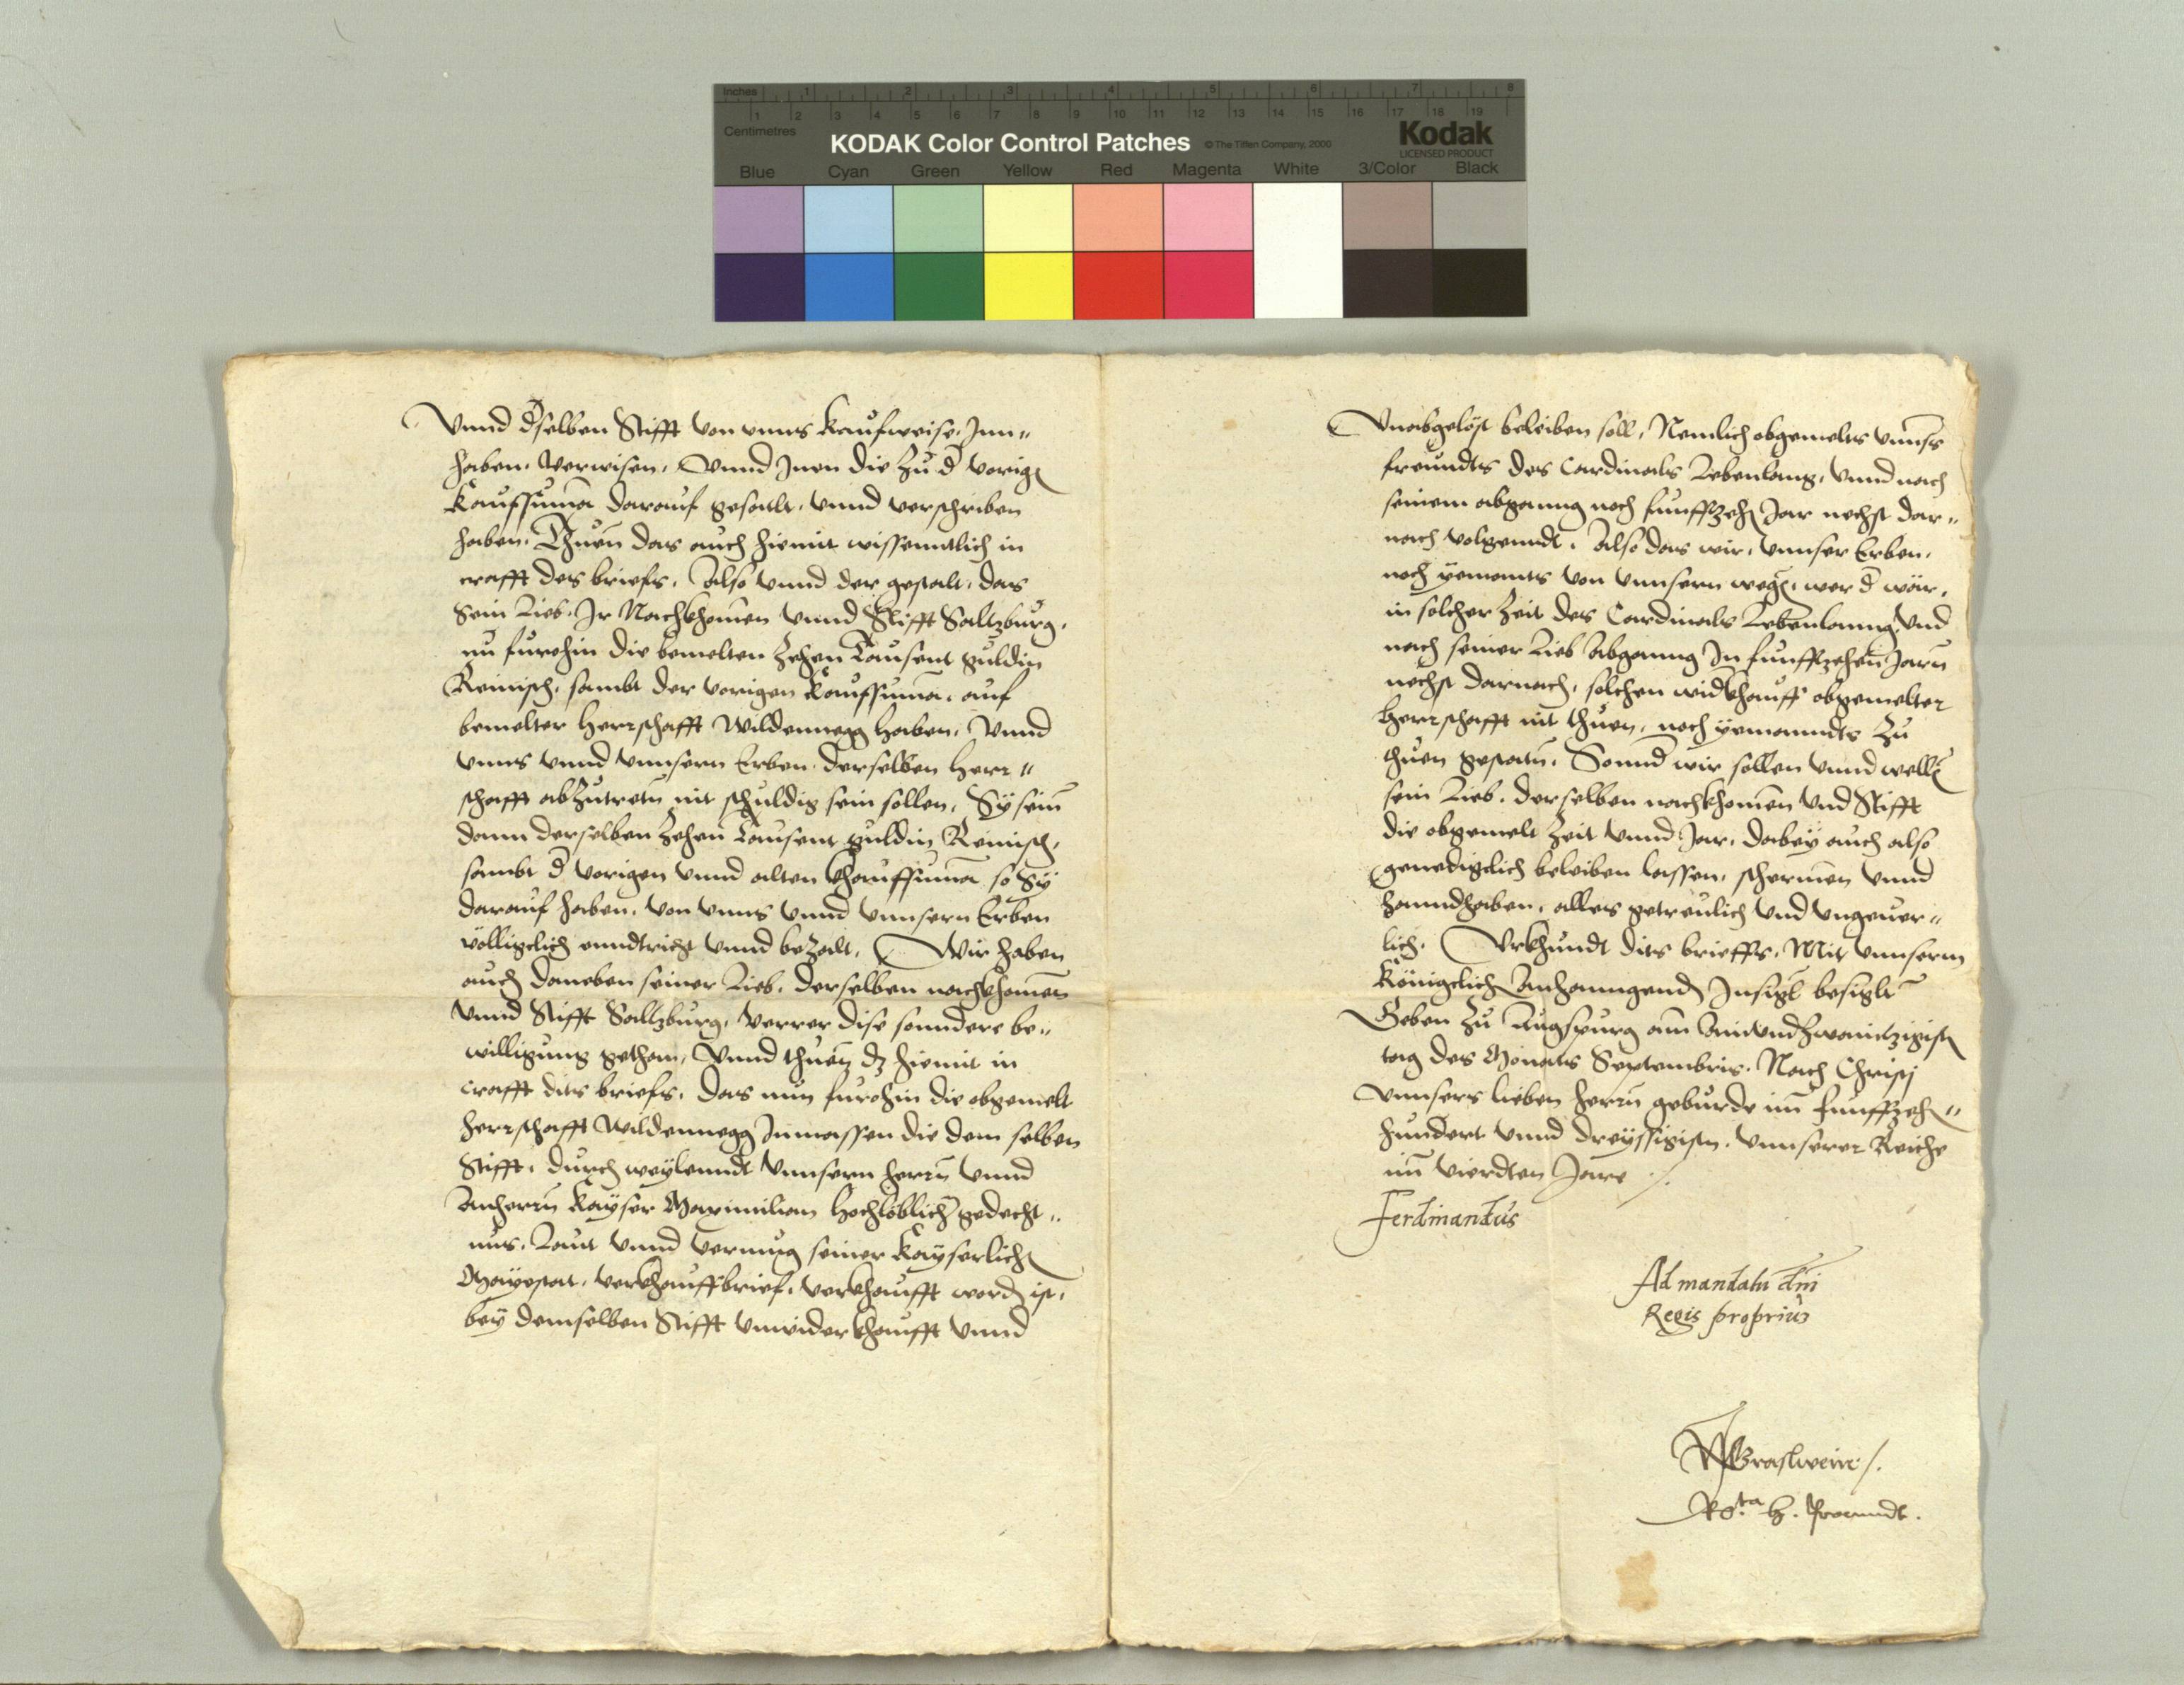 Inches 1 2 3 4 5 6 7 8
1 2 3 4 5 6 7 8 9 10 11 12 13 14 15 16 17 18 19
Centimetres
KODAK Color Control Patches © The Tiffen Company, 2000 Kodak
LICENSED PRODUCT
Blue Cyan Green Yellow Red Magenta White 3/Color Black
Vnnd dselben Stifft von vnns Kaufweise Inn„
haben, Verwisen, Vnnd Inen die zu d vorig
Kaufsuma darauf geslalt, vnnd verschriben
haben, Thuen das auch hiemit wissenntlich in
crafft des briefs, Also vnnd der gestalt, das
Sein Lieb, Ir Nachkhomen vnnd Stifft Saltzburg,
nu furohin die bemelten Zehen Tausent guldin
Reinisch, sambt der vorigen Kaufsuma, auf
bemelter Herrschafft Wildennegg haben, Vnnd
vnns vnnd vnnsern Erben derselben Herr„
schafft abzutretn nit schuldig sein sollen, Sy sein
dann derselben Zehen Tausent guldin Reinisch,
sambt d vorigen vnnd alten Khauffsuma so Sy
darauf haben, von vnns vnnd vnnsern Erben
völligclich enndtricht vnnd bezalt, Wir haben
auch daneben seiner Lieb, derselben nachkhomen
vnnd Stifft Saltzburg, verrer dise sonndere be„
willigung gethan, Vnnd thuen dz hiemit in
crafft dits briefs, das nun furohin die obgemelt
herrschafft Wildennegg Inmassen die dem selben
Stifft, durch weylenndt Vnnsern herrn vnnd
Anherrn Kayser Maximilian Hochlöblich gedecht„
nus, Laut vnnd vermug seiner Kayserlich
Mayestat, verkhauffbrief, verkhaufft word ist,
bey demselben Stifft vnwiderkhaufft vnnd
Vnabgelöst beleiben soll, Nemlich obgemelts vnnsers
freundts des Cardinals Lebenlang, vnnd nach
seinem abganng noch funffzeh Jar nechst dar„
nach volgenndt, Also das wir, vnnser Erben,
noch yemants von vnnsern weg, wer d wär,
in solcher Zeit des Cardinals Lebenlanng, vnd
nach seiner Lieb Abganng In funffzehen Jarn
nechst darnach, solchen widkhauff obgemelter
Herrschafft nit thuen, noch yemanndts zu
thuen gestatn, Sonnd wir sollen vnnd well
sein Lieb, derselben nachkhomen vnd Stifft
die obgemelt Zeit vnnd Jar, dabey auch also
genedigclich beleiben lassen, schermen vnnd
hanndhaben, alles getreulich vnd vngeuer„
lich. Vrkhundt dits brieffs, Mit vnnserm
Königclich Anhanngend Insigl besiglt
Geben zu Augspurg am Ainvndzwaintzigist
tag des Monats Septembris. Nach Christj
vnnsers lieben herrn geburde im funffzeh„
hundert vnnd dreyssigistn. Vnnserer Reiche
im vierdten Jare /.
Ferdinandus
Ad mandatu dni
Regis propriu
Graswein /.